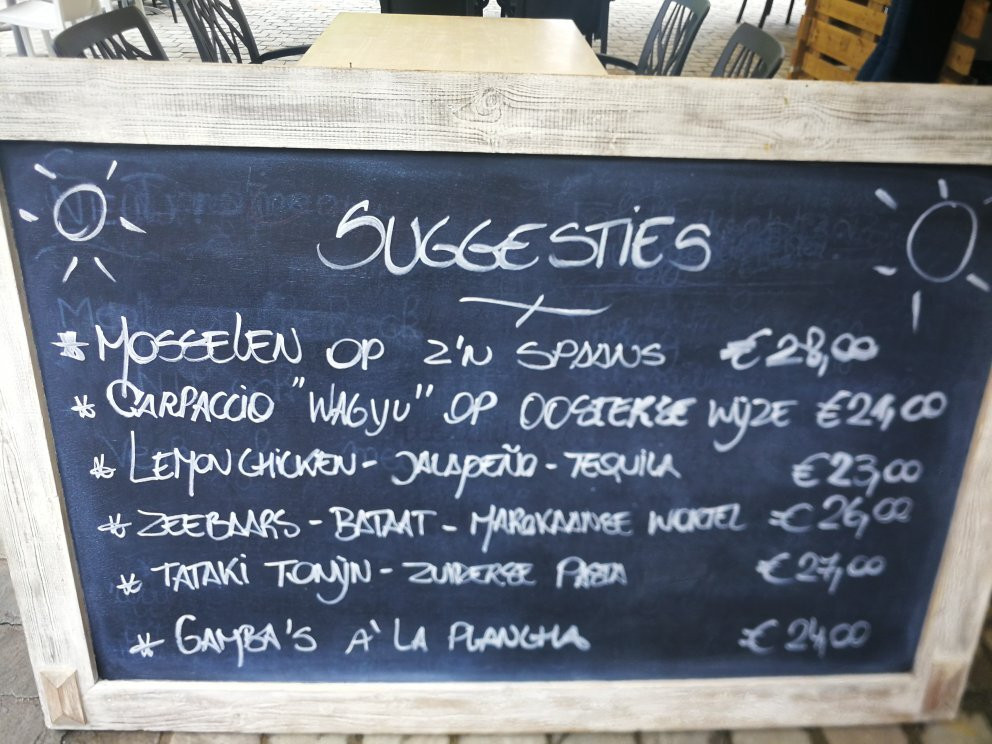 SUGGESTIES
* MOSSELEN OP Z'N SPAANS €28,00
* CARPACCIO "WAGYU" OP OOSTERSE WIJZE €21,00
* LEMON CHICKEN - JALAPEÑO - TEQUILA €23,00
* ZEEBAARS - BATAAT - MAROKAANSE WORTEL €26,00
* TATAKI TONIJN - ZUIDERSE PASTA €27,00
* GAMBA'S A' LA PLANCHA €24,00